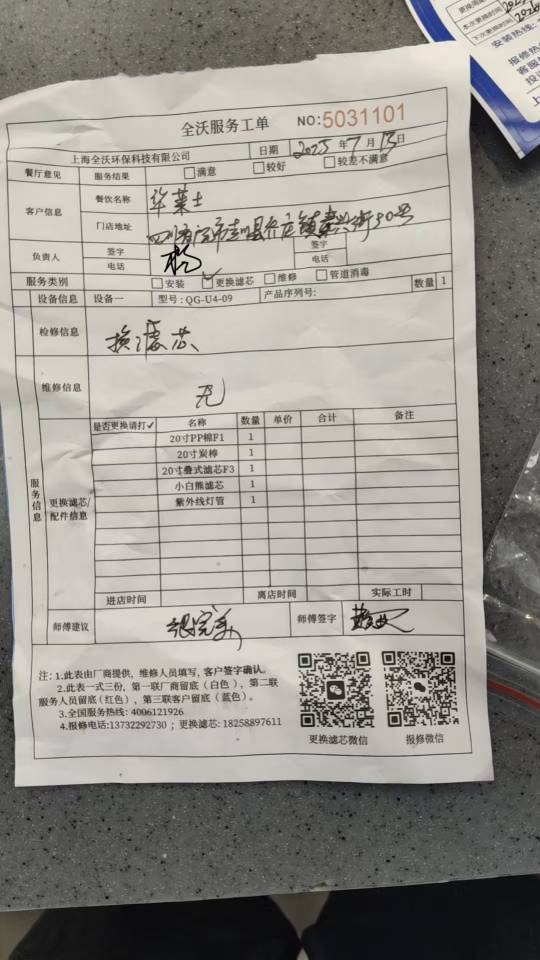 全沃服务工单 NO:5031101
上海全沃环保科技有限公司 日期 2025 年 7 月 13 日
餐厅意见 服务结果 □满意 □较好 □较差不满意
客户信息 餐饮名称 华莱士
门店地址 镇 街50号
负责人 签字 杨 签字
电话 电话
服务类别 □安装 ☑更换滤芯 □维修 □管道消毒
设备信息 设备一 型号:QG-U4-09 产品序列号: 数量 1
检修信息 换滤芯
维修信息 无
服务信息
更换滤芯/配件信息
是否更换请打✓ 名称 数量 单价 合计 备注
20寸PP棉F1 1
20寸炭棒 1
20寸叠式滤芯F3 1
小白熊滤芯 1
紫外线灯管 1
进店时间 离店时间 实际工时
师傅建议 很完美 师傅签字
注:1.此表由厂商提供,维修人员填写,客户签字确认。
2.此表一式三份,第一联厂商留底(白色),第二联
服务人员留底(红色),第三联客户留底(蓝色)。
3.全国服务热线:4006121926
4.报修电话:13732292730;更换滤芯:18258897611
更换滤芯微信 报修微信
本次更换时间
下次更换时间
安装热线:
报修热
客服
投
上